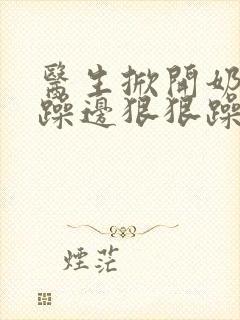 醫生掀開奶
躁邊狠狠躁
煙茫